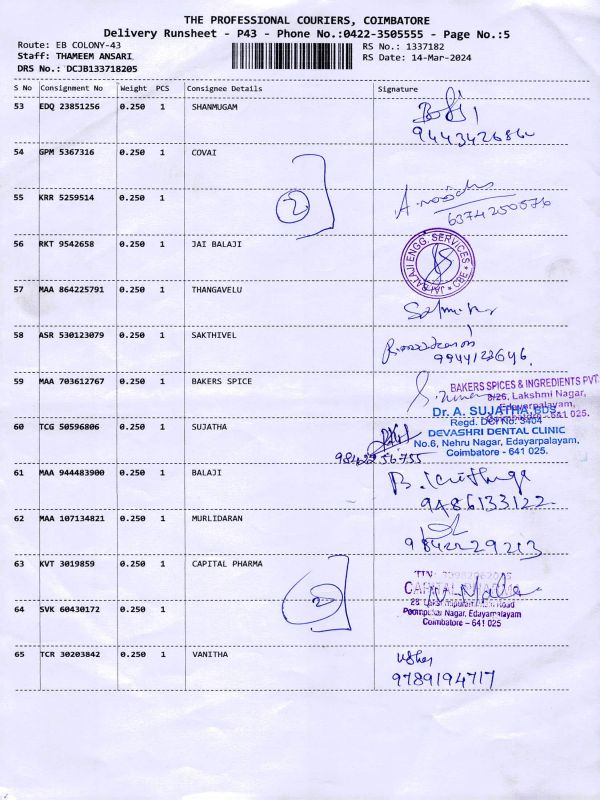 THE PROFESSIONAL COURIERS, COIMBATORE
Delivery Runsheet - P43 - Phone No.:0422-3505555 - Page No.:5
Route: EB COLONY-43 RS No.: 1337182
Staff: THAMEEM ANSARI RS Date: 14-Mar-2024
DRS No.: DCJB133718205
S No Consignment No Weight PCS Consignee Details Signature
53 EDQ 23851256 0.250 1 SHANMUGAM
54 GPM 5367316 0.250 1 COVAI
2
55 KRR 5259514 0.250 1
6374250576
56 RKT 9542658 0.250 1 JAI BALAJI
JAI BALAJI ENGG. SERVICES * CBE *
57 MAA 864225791 0.250 1 THANGAVELU
58 ASR 530123079 0.250 1 SAKTHIVEL
9944122646.
59 MAA 703612767 0.250 1 BAKERS SPICE
BAKERS SPICES & INGREDIENTS PVT.
8/26, Lakshmi Nagar,
Edayarpalayam,
641 025.
60 TCG 50596806 0.250 1 SUJATHA
Dr. A. SUJATHA, BDS.
Regd. DCI No: 3404
DEVASHRI DENTAL CLINIC
No.6, Nehru Nagar, Edayarpalayam,
Coimbatore - 641 025.
9842256755
61 MAA 944483900 0.250 1 BALAJI
9486133122
62 MAA 107134821 0.250 1 MURLIDARAN
9842229213
63 KVT 3019859 0.250 1 CAPITAL PHARMA
2
64 SVK 60430172 0.250 1
Poompukar Nagar, Edayarpalayam
Coimbatore - 641 025
65 TCR 30203842 0.250 1 VANITHA
9789194717